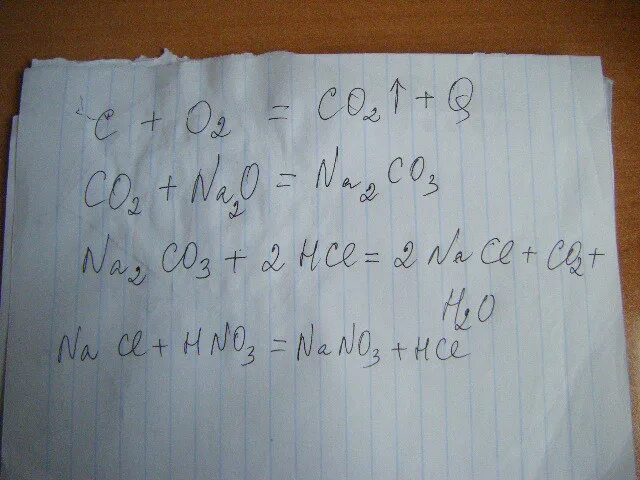 C + O2 = CO2↑ + Q
CO2 + Na2O = Na2CO3
Na2CO3 + 2HCl = 2NaCl + CO2 +
H2O
NaCl + HNO3 = NaNO3 + HCl